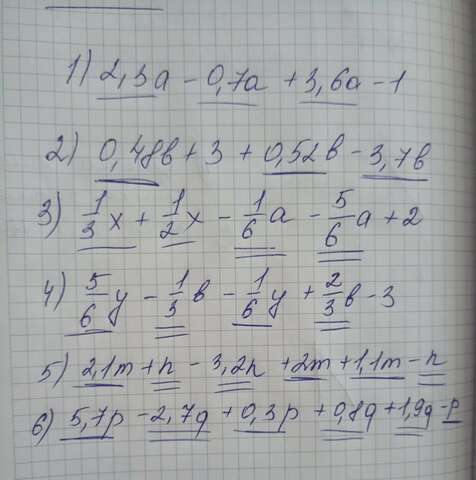 1) 2,3a - 0,7a + 3,6a - 1
2) 0,48b + 3 + 0,52b - 3,7b
3) 1/3 x + 1/2 x - 1/6 a - 5/6 a + 2
4) 5/6 y - 1/3 b - 1/6 y + 2/3 b - 3
5) 2,1m + n - 3,2n + 2m + 1,1m - n
6) 5,7p - 2,7q + 0,3p + 0,8q + 1,9q - p